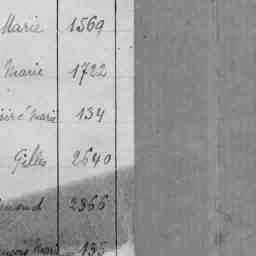 Marie 1569
Marie 1722
Marie 134
Gilles 2640
2366
Marie 135